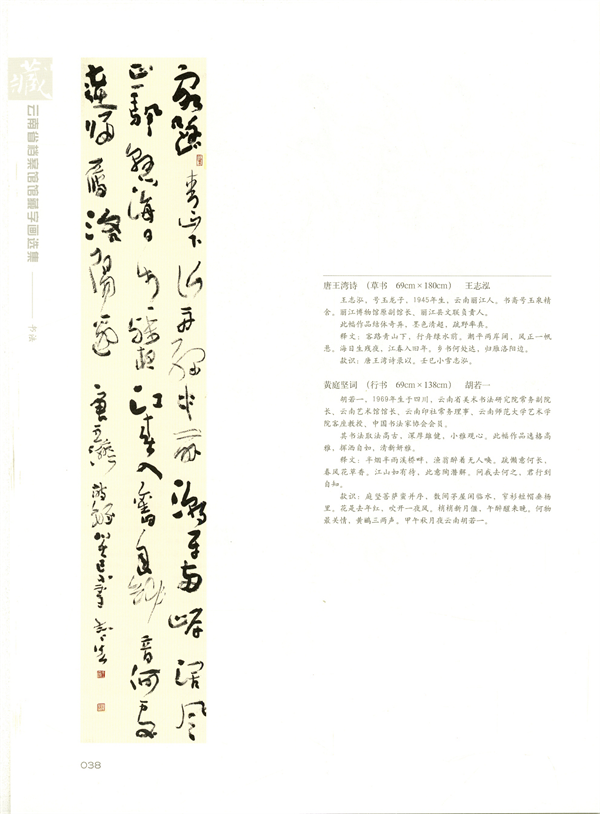 藏
云南省档案馆馆藏字画选集
书法
客路青山下行舟绿水前潮平两岸阔风
正一帆悬海日生残夜江春入舊年乡音何处
達归雁洛阳边
唐王湾诗
唐王湾诗 (草书 69cm×180cm) 王志泓
王志泓，号玉龙子，1945年生，云南丽江人。书斋号玉泉精
舍。丽江博物馆原副馆长、丽江县文联负责人。
此幅作品结体奇异，墨色清超，疏野率真。
释文：客路青山下，行舟绿水前。潮平两岸阔，风正一帆
悬。海日生残夜，江春入旧年。乡书何处达，归雁洛阳边。
款识：唐王湾诗录以。壬巳小雪志泓。
黄庭坚词 (行书 69cm×138cm) 胡若一
胡若一，1969年生于四川，云南省美术书法研究院常务副院
长、云南艺术馆馆长、云南印社常务理事、云南师范大学艺术学
院客座教授、中国书法家协会会员。
其书法取法高古，深厚雄健，小雅观心。此幅作品逸格高
雅，挥洒自如，清新妍雅。
释文：半烟半雨溪桥畔，渔翁醉着无人唤。疏懒意何长，
春风花草香。江山如有待，此意陶潜解。问我去何之，君行到
自知。
款识：庭坚菩萨蛮并序，数间茅屋闲临水，窄衫短帽垂杨
里。花是去年红，吹开一夜风。梢梢新月偃，午醉醒来晚。何物
最关情，黄鹂三两声。甲午秋月夜云南胡若一。
038